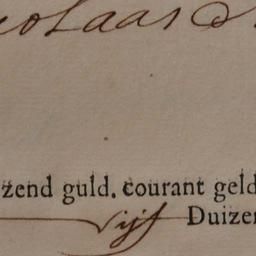 colaas
zend guld. courant geld
Vijf Duizen